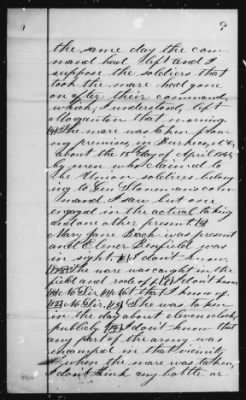 9
the same day the com-
mand had left and I
suppose the soldiers that
took the mare had gone
on after their command,
which, I understood, left
Morganton that morning.
The mare was taken from
my premises in Burke county,
about the 18 day of April 1865,
by men who claimed to
be Union soldiers belong-
ing to Gen Stoneman's com-
mand. I saw but one
engaged in the actual taking
and one other present
Mary Jane Bach was present
and Elener Benfield was
in sight. I don't know,
The mare was caught in the
field and rode off. I don't know
No Sir. Not that I know of
No Sir. She was taken
in the day about eleven o'clock,
publicly I don't know that
any part of the army was
encamped in that vicinity
when the mare was taken,
I don't think any battle or